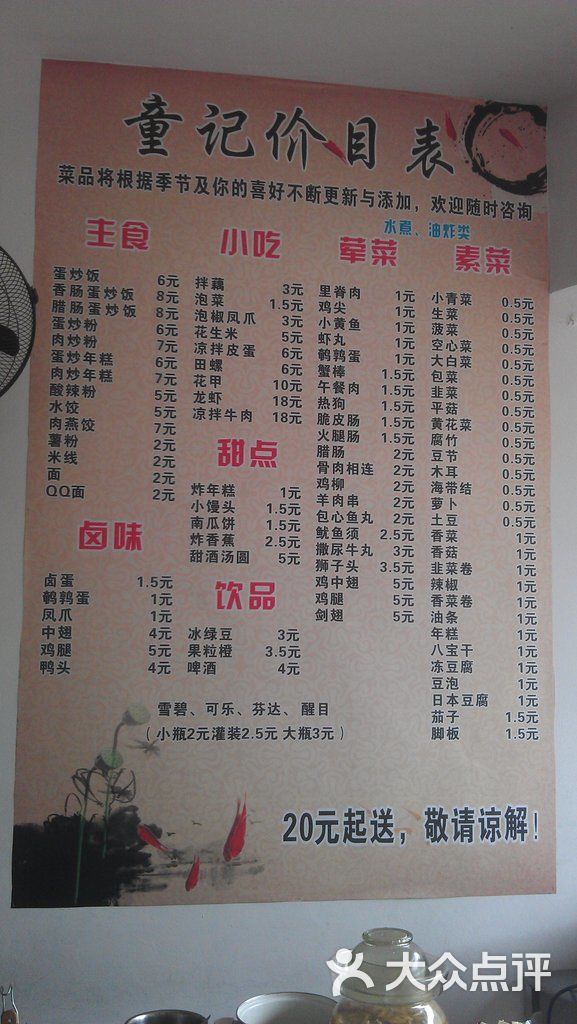 童记价目表
菜品将根据季节及你的喜好不断更新与添加，欢迎随时咨询
主食
蛋炒饭 6元
香肠蛋炒饭 8元
腊肠蛋炒饭 8元
蛋炒粉 6元
肉炒粉 7元
蛋炒年糕 6元
肉炒年糕 7元
酸辣粉 5元
水饺 5元
肉燕饺 7元
薯粉 2元
米线 2元
面 2元
QQ面 2元
卤味
卤蛋 1.5元
鹌鹑蛋 1元
凤爪 1元
中翅 4元
鸡腿 5元
鸭头 4元
小吃
拌藕 3元
泡菜 1.5元
泡椒凤爪 3元
花生米 5元
凉拌皮蛋 6元
田螺 6元
花甲 10元
龙虾 18元
凉拌牛肉 18元
甜点
炸年糕 1元
小馒头 1.5元
南瓜饼 1.5元
炸香蕉 2.5元
甜酒汤圆 5元
饮品
冰绿豆 3元
果粒橙 3.5元
啤酒 4元
水煮、油炸类
荤菜
里脊肉 1元
鸡尖 1元
小黄鱼 1元
虾丸 1元
鹌鹑蛋 1元
蟹棒 1.5元
午餐肉 1.5元
热狗 1.5元
脆皮肠 1.5元
火腿肠 1.5元
腊肠 2元
骨肉相连 2元
鸡柳 2元
羊肉串 2元
包心鱼丸 2元
鱿鱼须 2.5元
撒尿牛丸 3元
狮子头 3.5元
鸡中翅 5元
鸡腿 5元
剑翅 5元
素菜
小青菜 0.5元
生菜 0.5元
菠菜 0.5元
空心菜 0.5元
大白菜 0.5元
包菜 0.5元
韭菜 0.5元
平菇 0.5元
黄花菜 0.5元
腐竹 0.5元
豆节 0.5元
木耳 0.5元
海带结 0.5元
萝卜 0.5元
土豆 0.5元
香菜 1元
香菇 1元
韭菜卷 1元
辣椒 1元
香菜卷 1元
油条 1元
年糕 1元
八宝干 1元
冻豆腐 1元
豆泡 1元
日本豆腐 1元
茄子 1.5元
脚板 1.5元
雪碧、可乐、芬达、醒目
（小瓶2元灌装2.5元 大瓶3元）
20元起送，敬请谅解！
大众点评